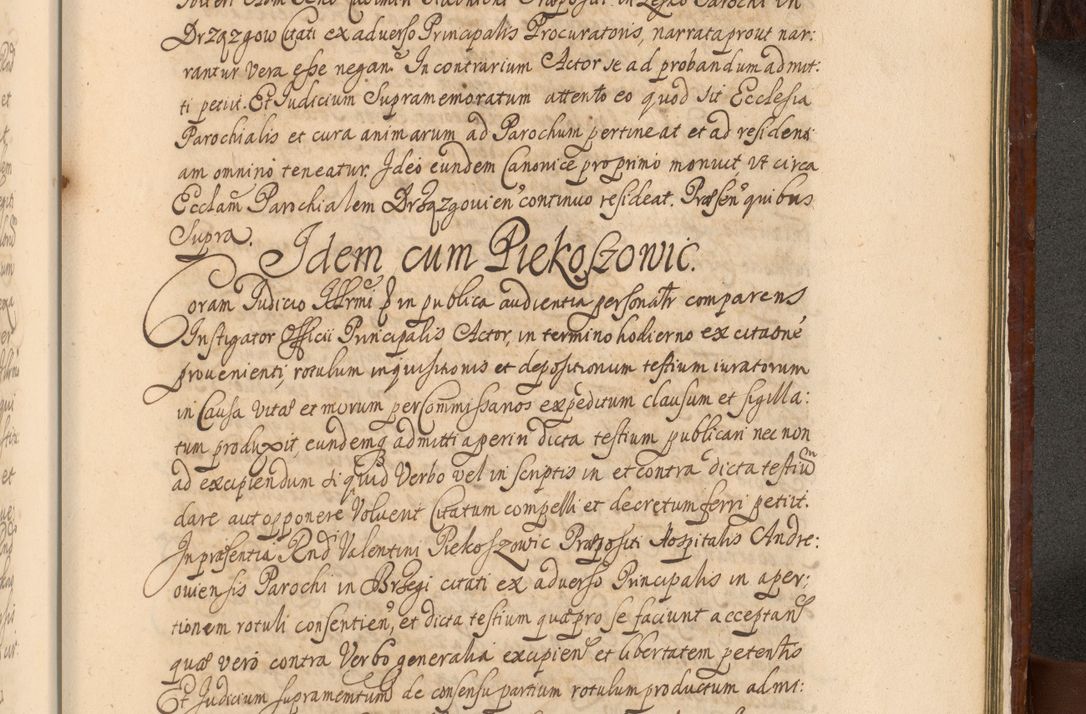 Drzązgow Citati ex adverso Principalis Procuratoris, narrata prout nar:
rantur vera esse negan. In contrarium Actor se ad probandum admit:
ti petiit. Et Iudicium Supramemoratum attento eo quod sit Ecclesia
Parochialis et cura animarum ad Parochum pertineat et ad residenti
am omnino teneatur. Ideo eundem Canonice pro primo monuit, ut circa
Ecclam Parochialem Drzązgovien continuo resideat. Præsen quibus
Supra.
Idem cum Piekoszowic.
Coram Iudicio in publica audientia personalr comparens
Instigator Officii Principalis Actor, in termino hodierno ex citaone
provenienti, rotulum inquisitionis et depositionum testium iuratorum
in Causa vitæ et morum per Commissarios expeditum clausum et sigilla:
tum produxit, eundemq admitti aperiri dicta testium publicari nec non
ad excipiendum si quid Verbo vel in scriptis in et contra dicta testium
dare aut opponere Voluent Citatum compelli et decretum ferri petiit.
In præsentia Rnd Valentini Piekoszowic Præpositi Hospitalis Andre:
oviensis Parochi in Brzegi citati ex adverso Principalis in aper:
tionem rotuli consentien, et dicta testium quæ pro se faciunt acceptan
quæ vero contra Verbo generalia excipien et libertatem petentis
Et Iudicium supramemtum de consensu partium rotulum productum admi: